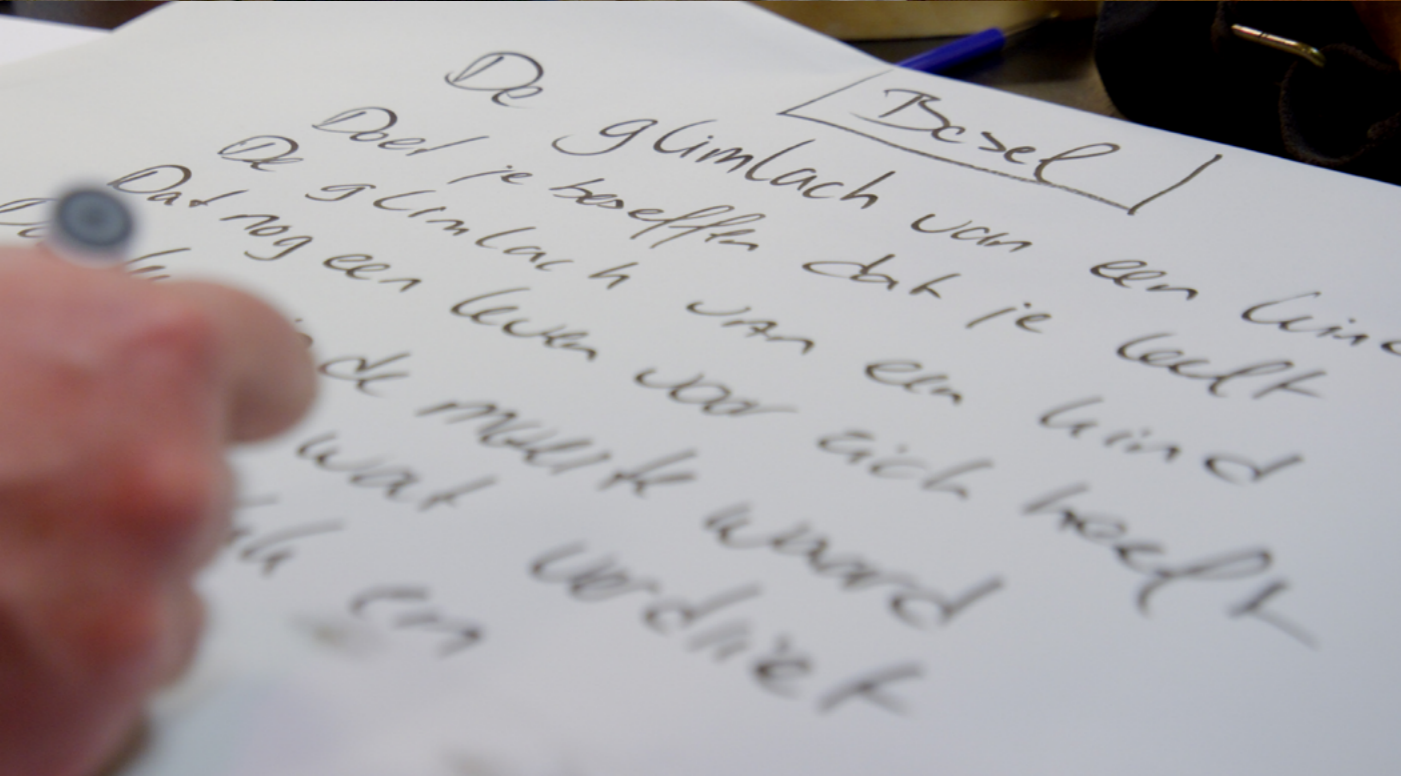 Besef
De glimlach van een kind
Doet je beseffen dat je leeft
De glimlach van een kind
Dat nog een leven voor zich heeft
de moeite waard
wat verdriet